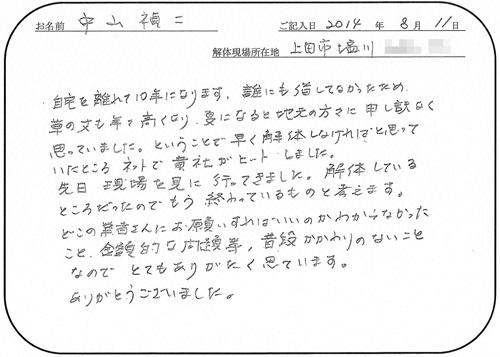 お名前 中山禎二 ご記入日 2014 年 8 月 11 日
解体現場所在地 上田市塩川
自宅を離れて10年になります。誰にも借してなかったため
草の丈も年々高くなり、夏になると地元の方々に申し訳なく
思っていました。ということで早く解体しなければと思って
いたところ ネットで貴社がヒットしました。
先日 現場を見に行ってきました。解体している
ところだったのでもう終わっているものと考えます。
どこの業者さんにお願いすればいいのかわからなかった
こと、金額的な問題等、普段かかわりのないこと
なので とてもありがたく思ています。
ありがとうございました。